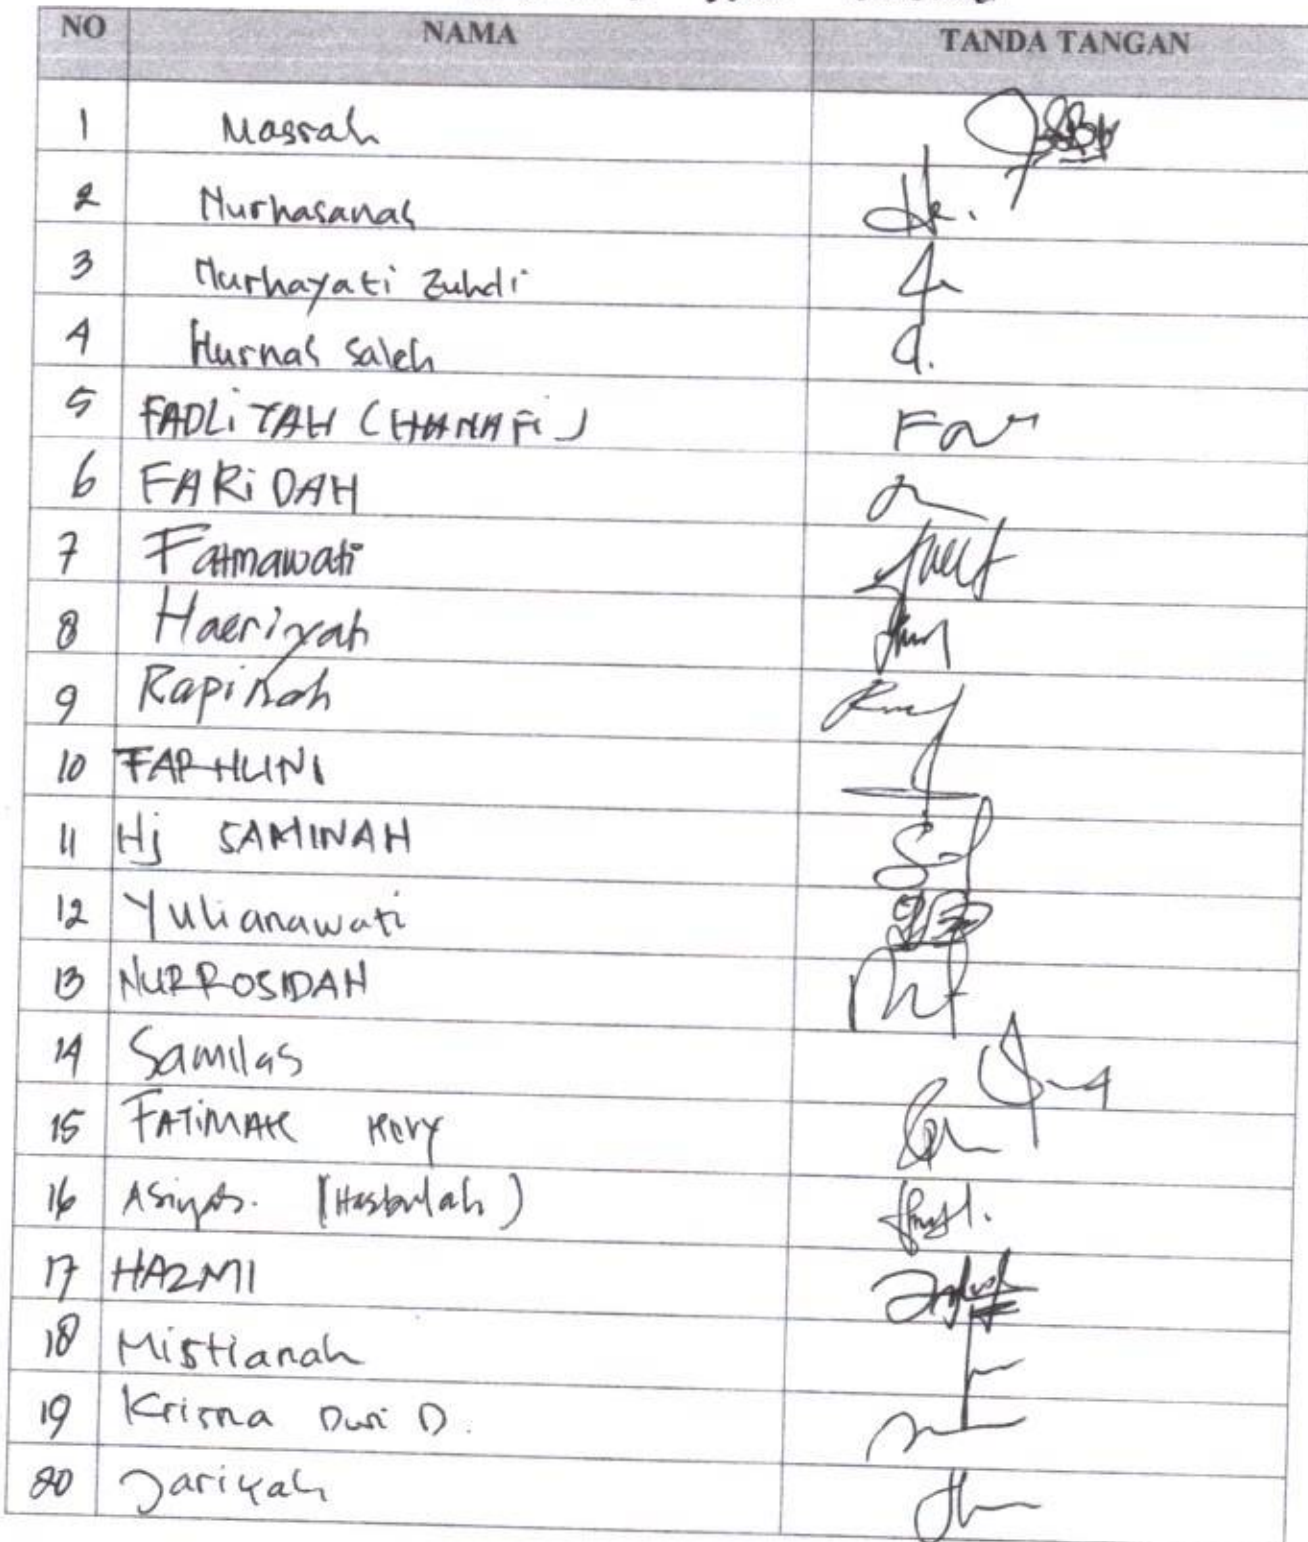 NO NAMA TANDA TANGAN
1 Masrah
2 Nurhasanah
3 Nurhayati Zuhdi
4 Nurnah Saleh
5 FADLiYAH (HANAFi)
6 FARiDAH
7 Fatmawati
8 Haeriyah
9 Rapikah
10 FARHUNI
11 Hj SAMINAH
12 Yulianawati
13 NURROSIDAH
14 Samilah
15 FATiMAH
16 Asiyah. (Hasbulah)
17 HAZMI
18 Mistianah
19 Krisna Dwi D.
20 Jariyah